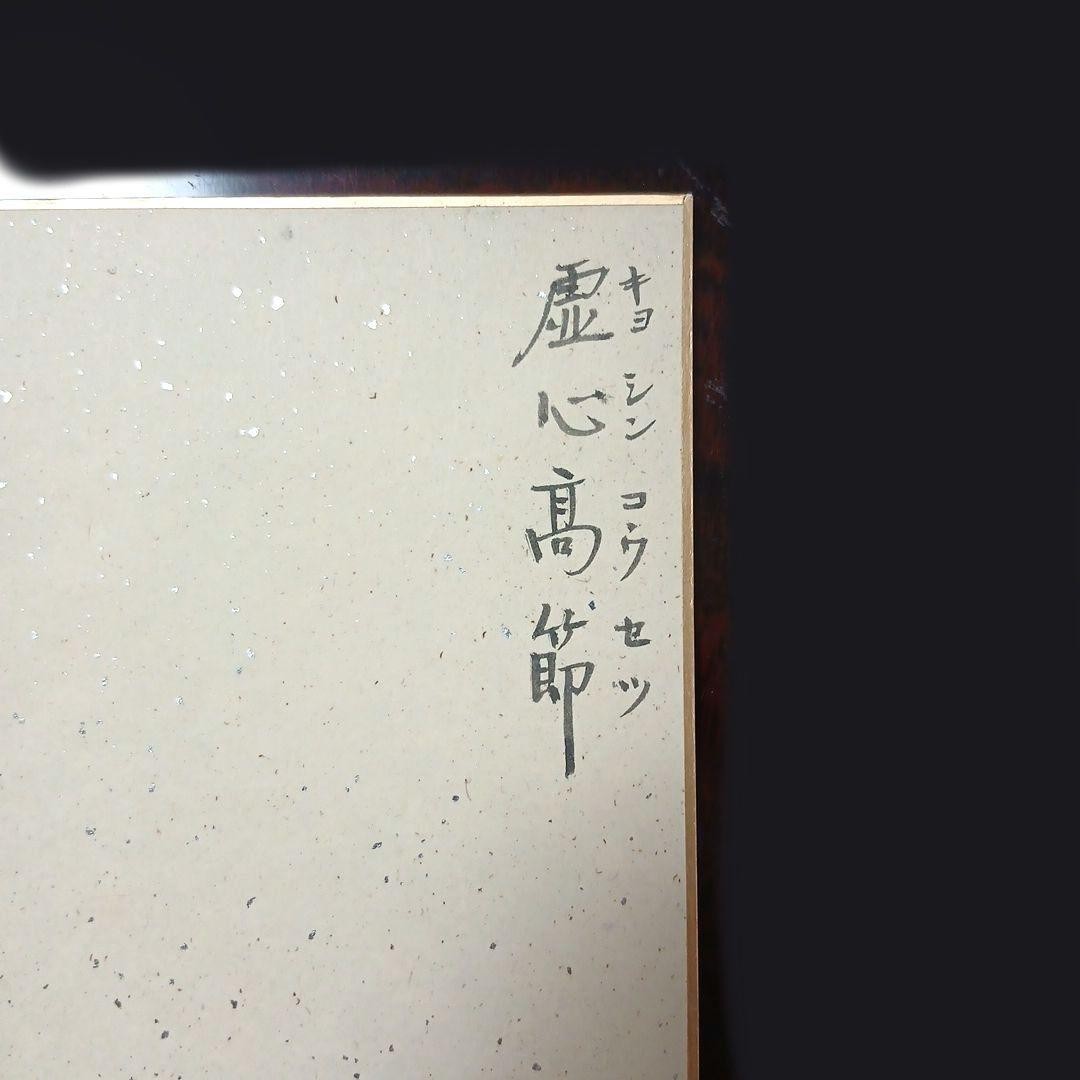 キヨ シン コウ セツ
虚心髙節